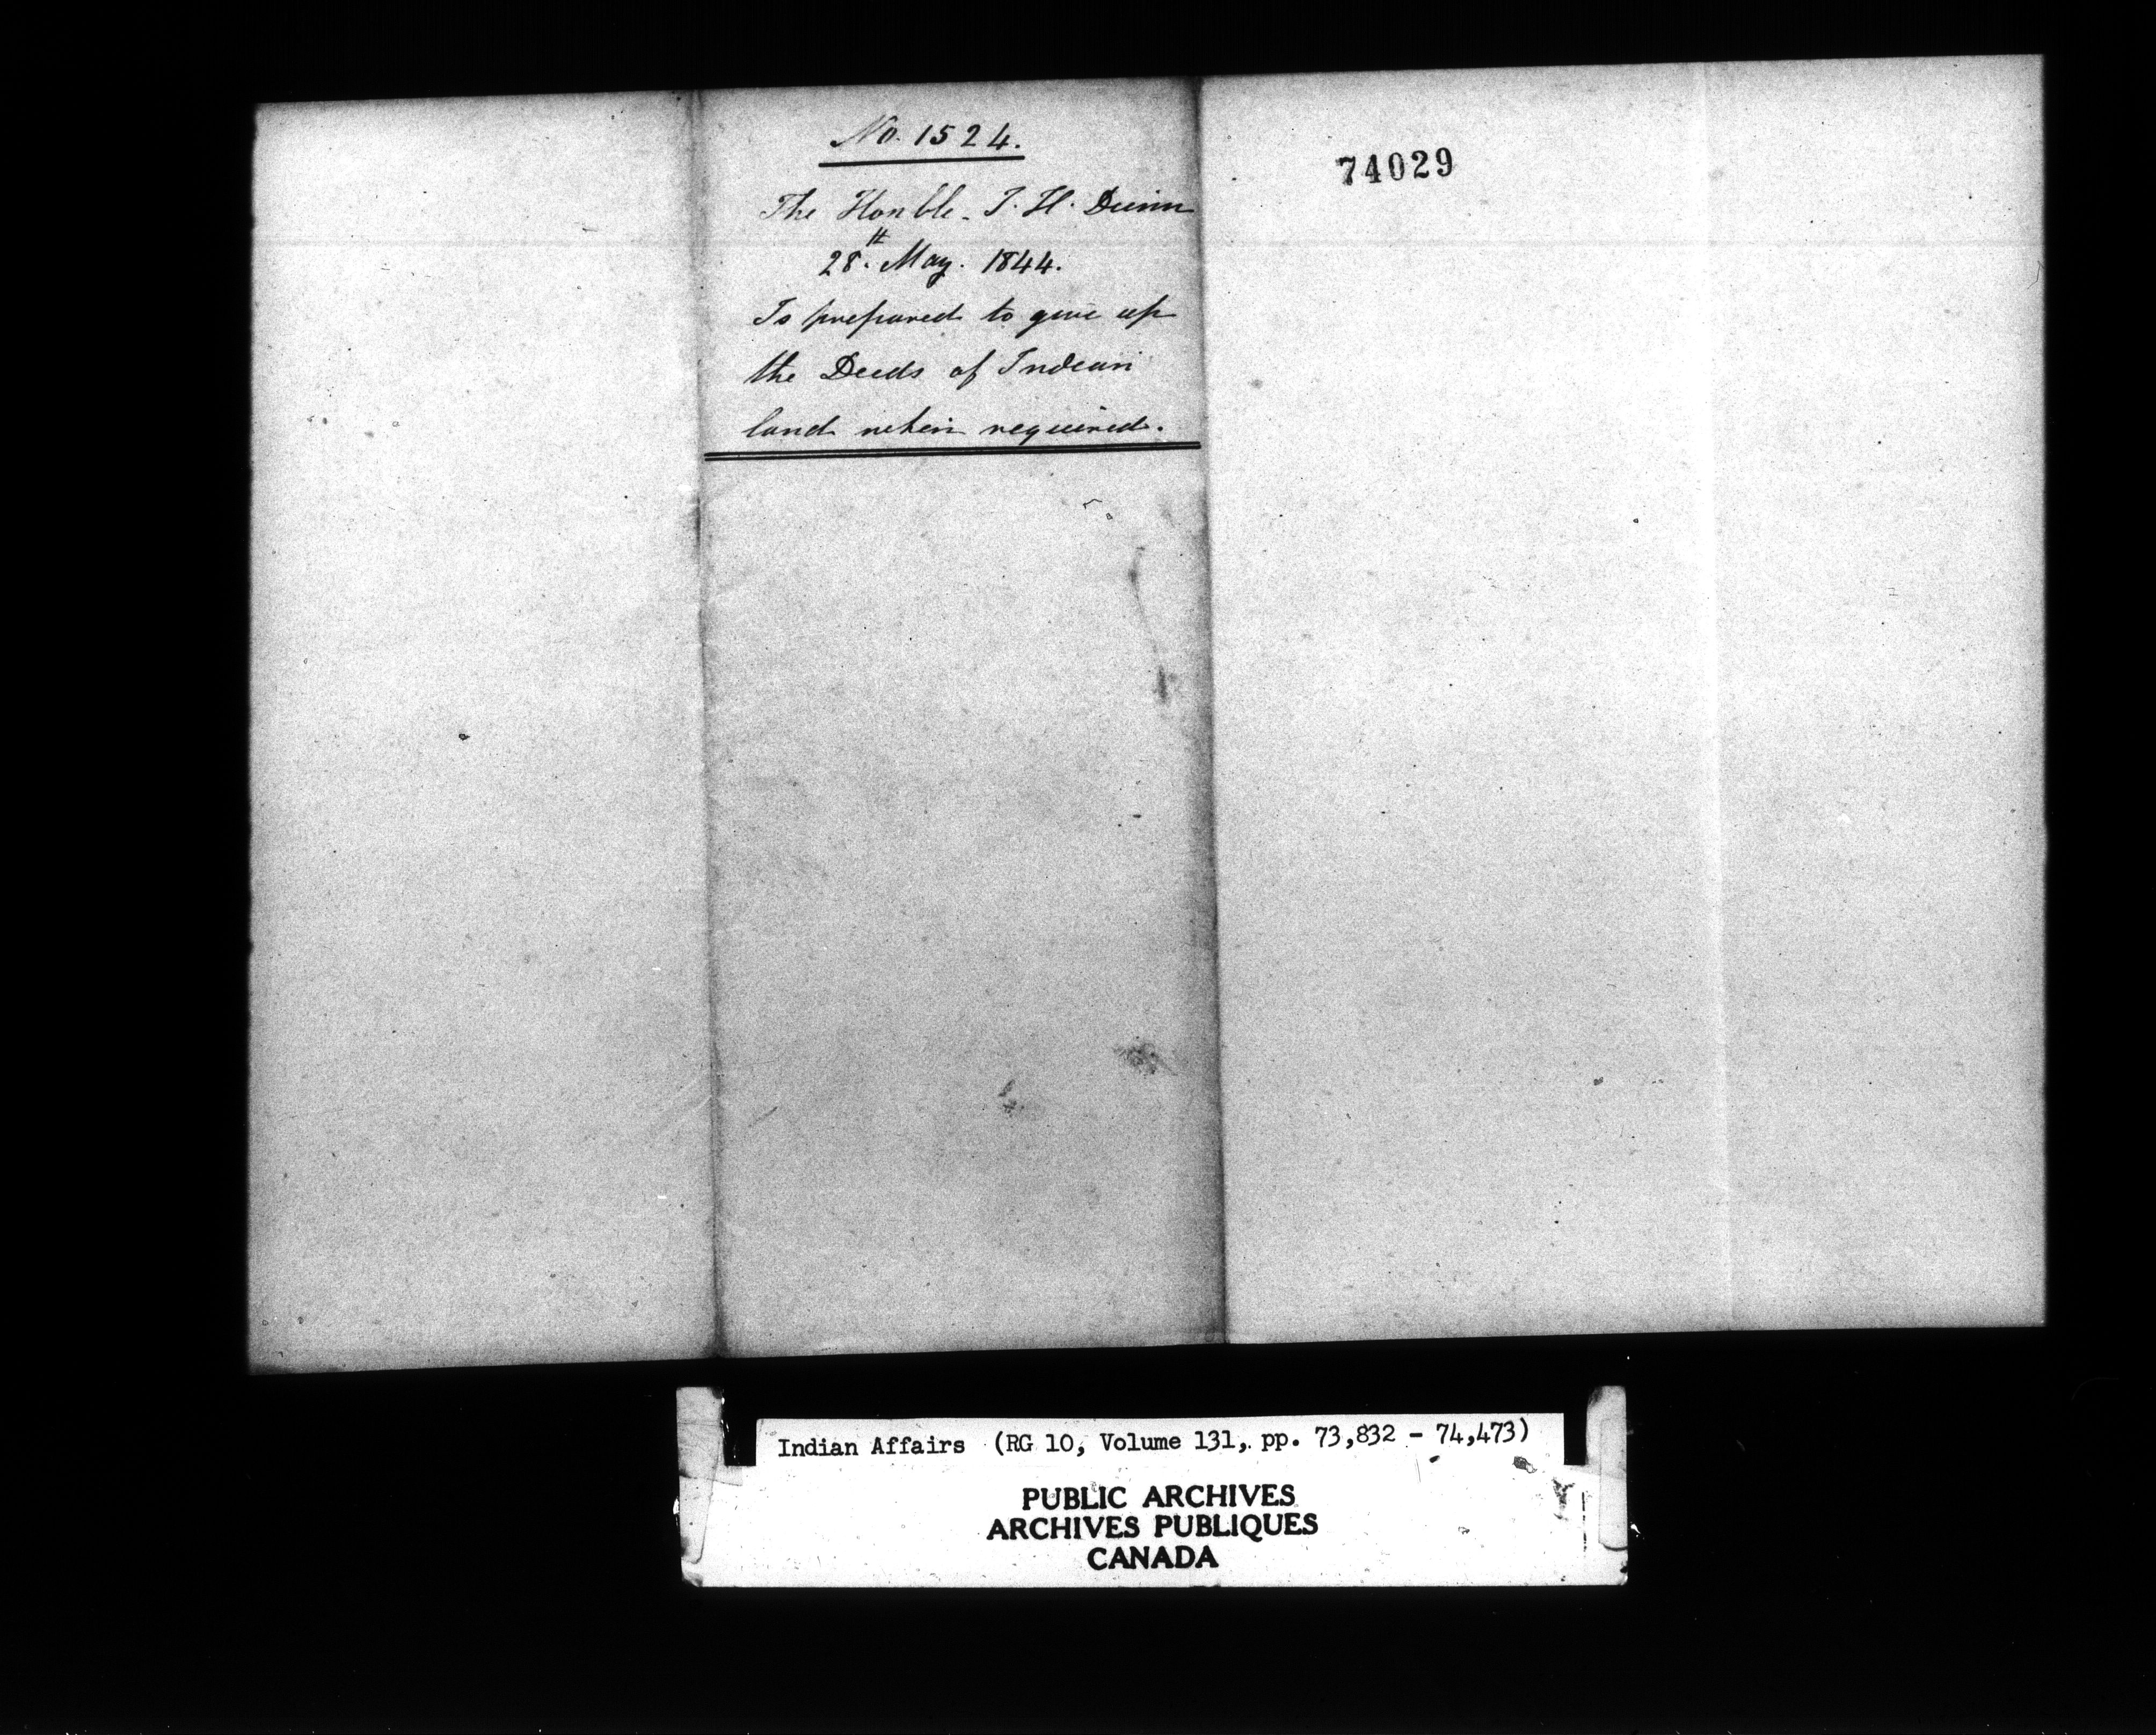 No. 1524.
The Honble. J. H. Dunn
28th. May. 1844.
Is prepared to give up
the Deeds of Indian
land when required.
74029
Indian Affairs (RG 10, Volume 131, pp. 73,832 - 74,473)
PUBLIC ARCHIVES
ARCHIVES PUBLIQUES
CANADA